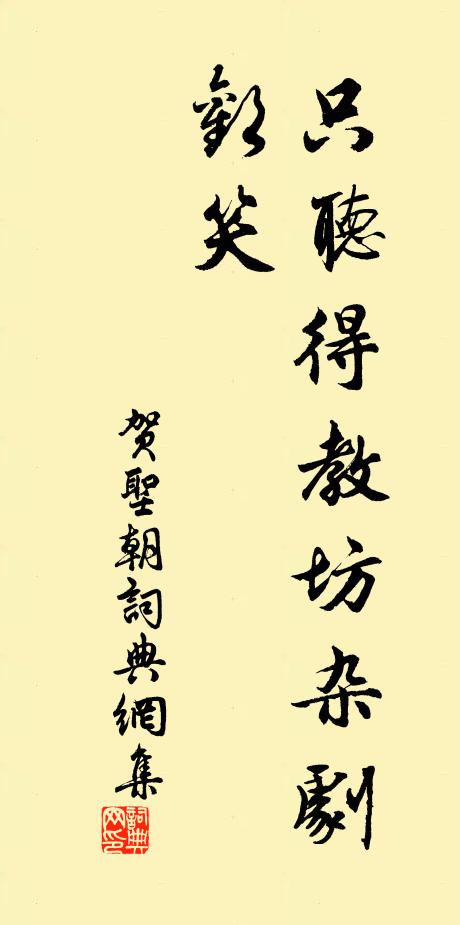 只聽得教坊杂劇
歡笑
贺聖朝詞典網集
詞典
网印